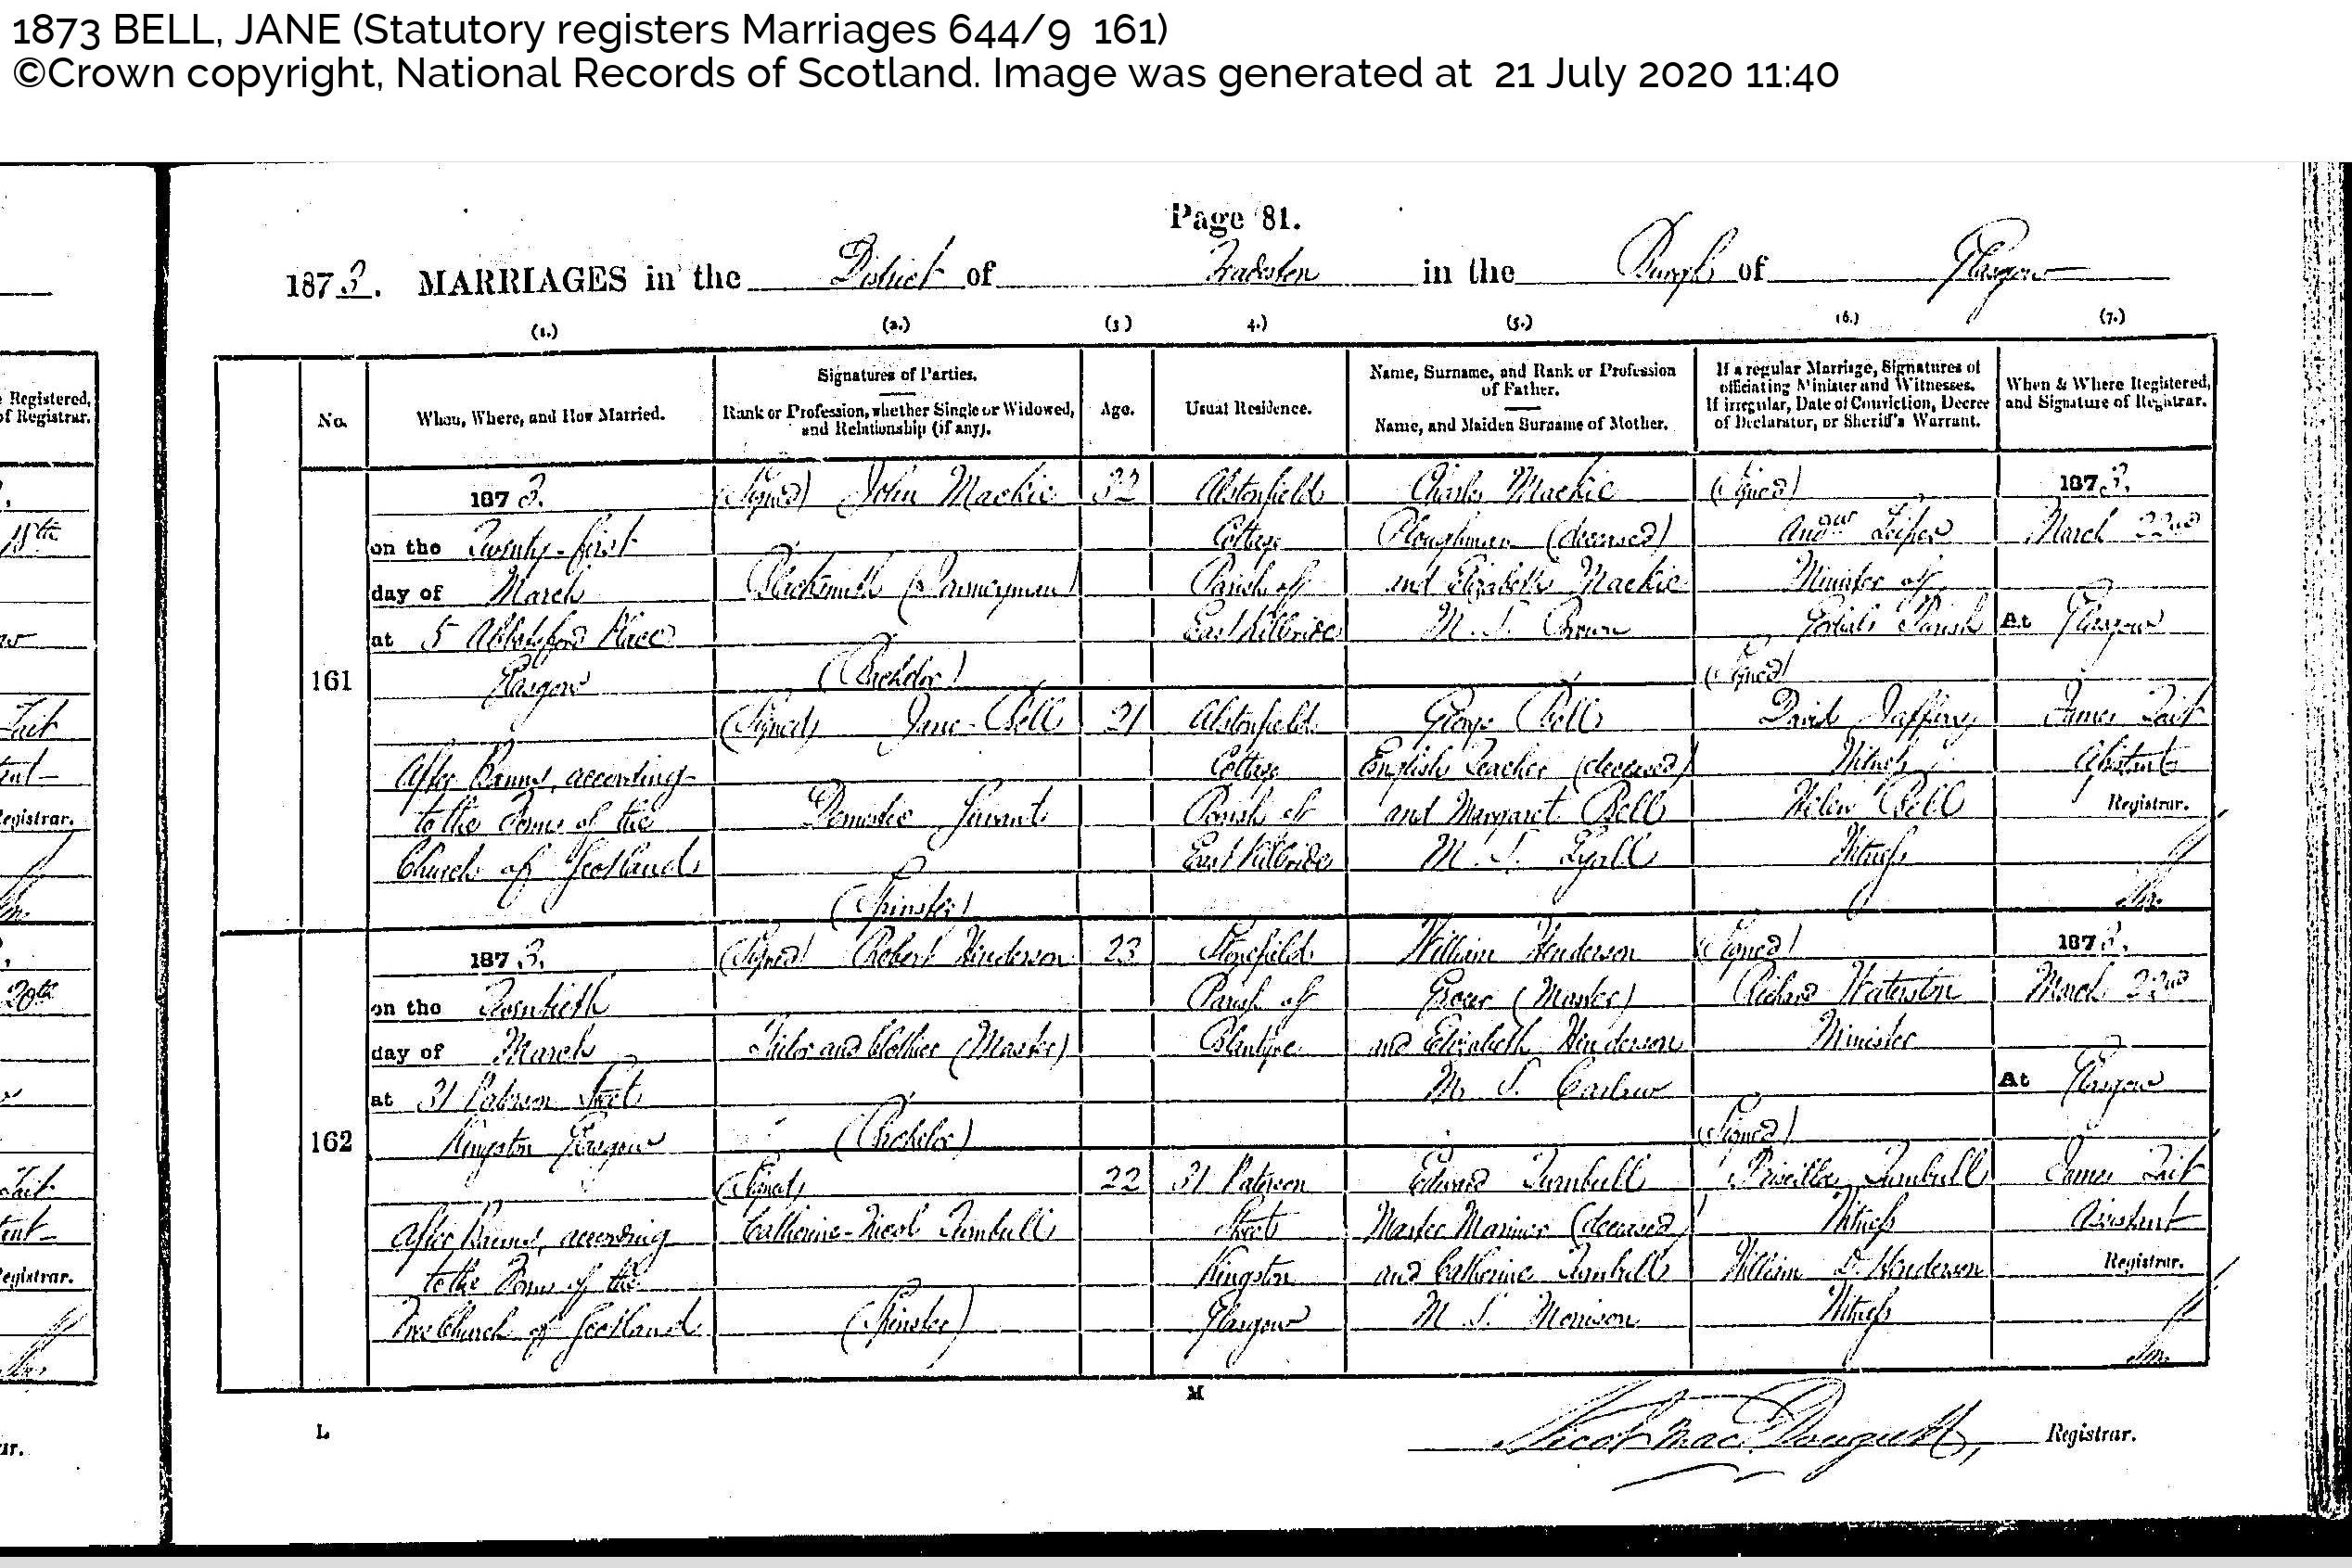 1873 BELL, JANE (Statutory registers Marriages 644/9 161)
©Crown copyright, National Records of Scotland. Image was generated at 21 July 2020 11:40
Page 81.
1873. MARRIAGES in the District of Tradeston in the Burgh of Glasgow
(1.) (2.) (3) 4.) (5.) (6.) (7.)
No.
When, Where, and How Married.
Signatures of Parties.
Rank or Profession, whether Single or Widowed,
and Relationship (if any).
Age.
Usual Residence.
Name, Surname, and Rank or Profession
of Father.
Name, and Maiden Surname of Mother.
If a regular Marriage, Signatures of
officiating Minister and Witnesses.
If irregular, Date of Conviction, Decree
of Declarator, or Sheriff's Warrant.
When & Where Registered,
and Signature of Registrar.
161
1873.
on the Twenty-first
day of March
at 5 Abbotsford Place
Glasgow
After Banns, according
to the Forms of the
Church of Scotland
(Signed) John Mackie
Blacksmith (Journeyman)
(Bachelor)
(Signed) Jane Bell
Domestic Servant
(Spinster)
32
21
Cottage
Parish of
East Kilbride
Cottage
Parish of
East Kilbride
Charles Mackie
Ploughman (deceased)
and Elizabeth Mackie
M. S. Brown
George Bell
English Teacher (deceased)
and Margaret Bell
M. S. Lyall
(Signed)
Andw Leiper
Minister of
Gorbals Parish
(Signed)
David Jaffrey
Witness
Helen Bell
Witness
1873.
March 22nd
At Glasgow
James Tait
Assistant
Registrar.
162
1873.
on the Twentieth
day of March
at 31 Paterson Street
Kingston Glasgow
After Banns, according
to the Forms of the
Free Church of Scotland
(Signed) Robert Henderson
Tailor and Clothier (Master)
(Bachelor)
(Signed)
Catherine Nicol Turnbull
(Spinster)
23
22
Stonefield
Parish of
Blantyre
31 Paterson
Street
Kingston
Glasgow
William Henderson
Grocer (Master)
and Elizabeth Henderson
M. S. Carlaw
Edward Turnbull
Master Mariner (deceased)
and Catherine Turnbull
M. S. Morrison
(Signed)
Richard Waterston
Minister
(Signed)
Priscilla Turnbull
Witness
William D. Henderson
Witness
1873.
March 22nd
At Glasgow
James Tait
Assistant
Registrar.
L
M
Nicol MacDougall, Registrar.
Registered,
of Registrar.
18th
Tait
Registrar.
20th
Tait
Registrar.